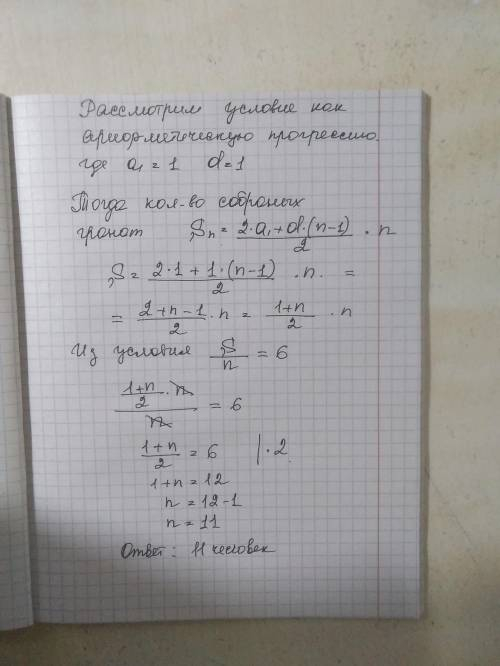 Рассмотрим условие как
арифметическую прогрессию.
где a₁ = 1 d = 1
Тогда кол-во собраных
гранат Sₙ = (2·a₁+d·(n-1))/2 · n
S = (2·1+1·(n-1))/2 · n. =
= (2+n-1)/2 · n = (1+n)/2 · n
Из условия S/n = 6
((1+n)/2 · n)/n = 6
(1+n)/2 = 6 |·2
1+n = 12
n = 12-1
n = 11
Ответ: 11 человек